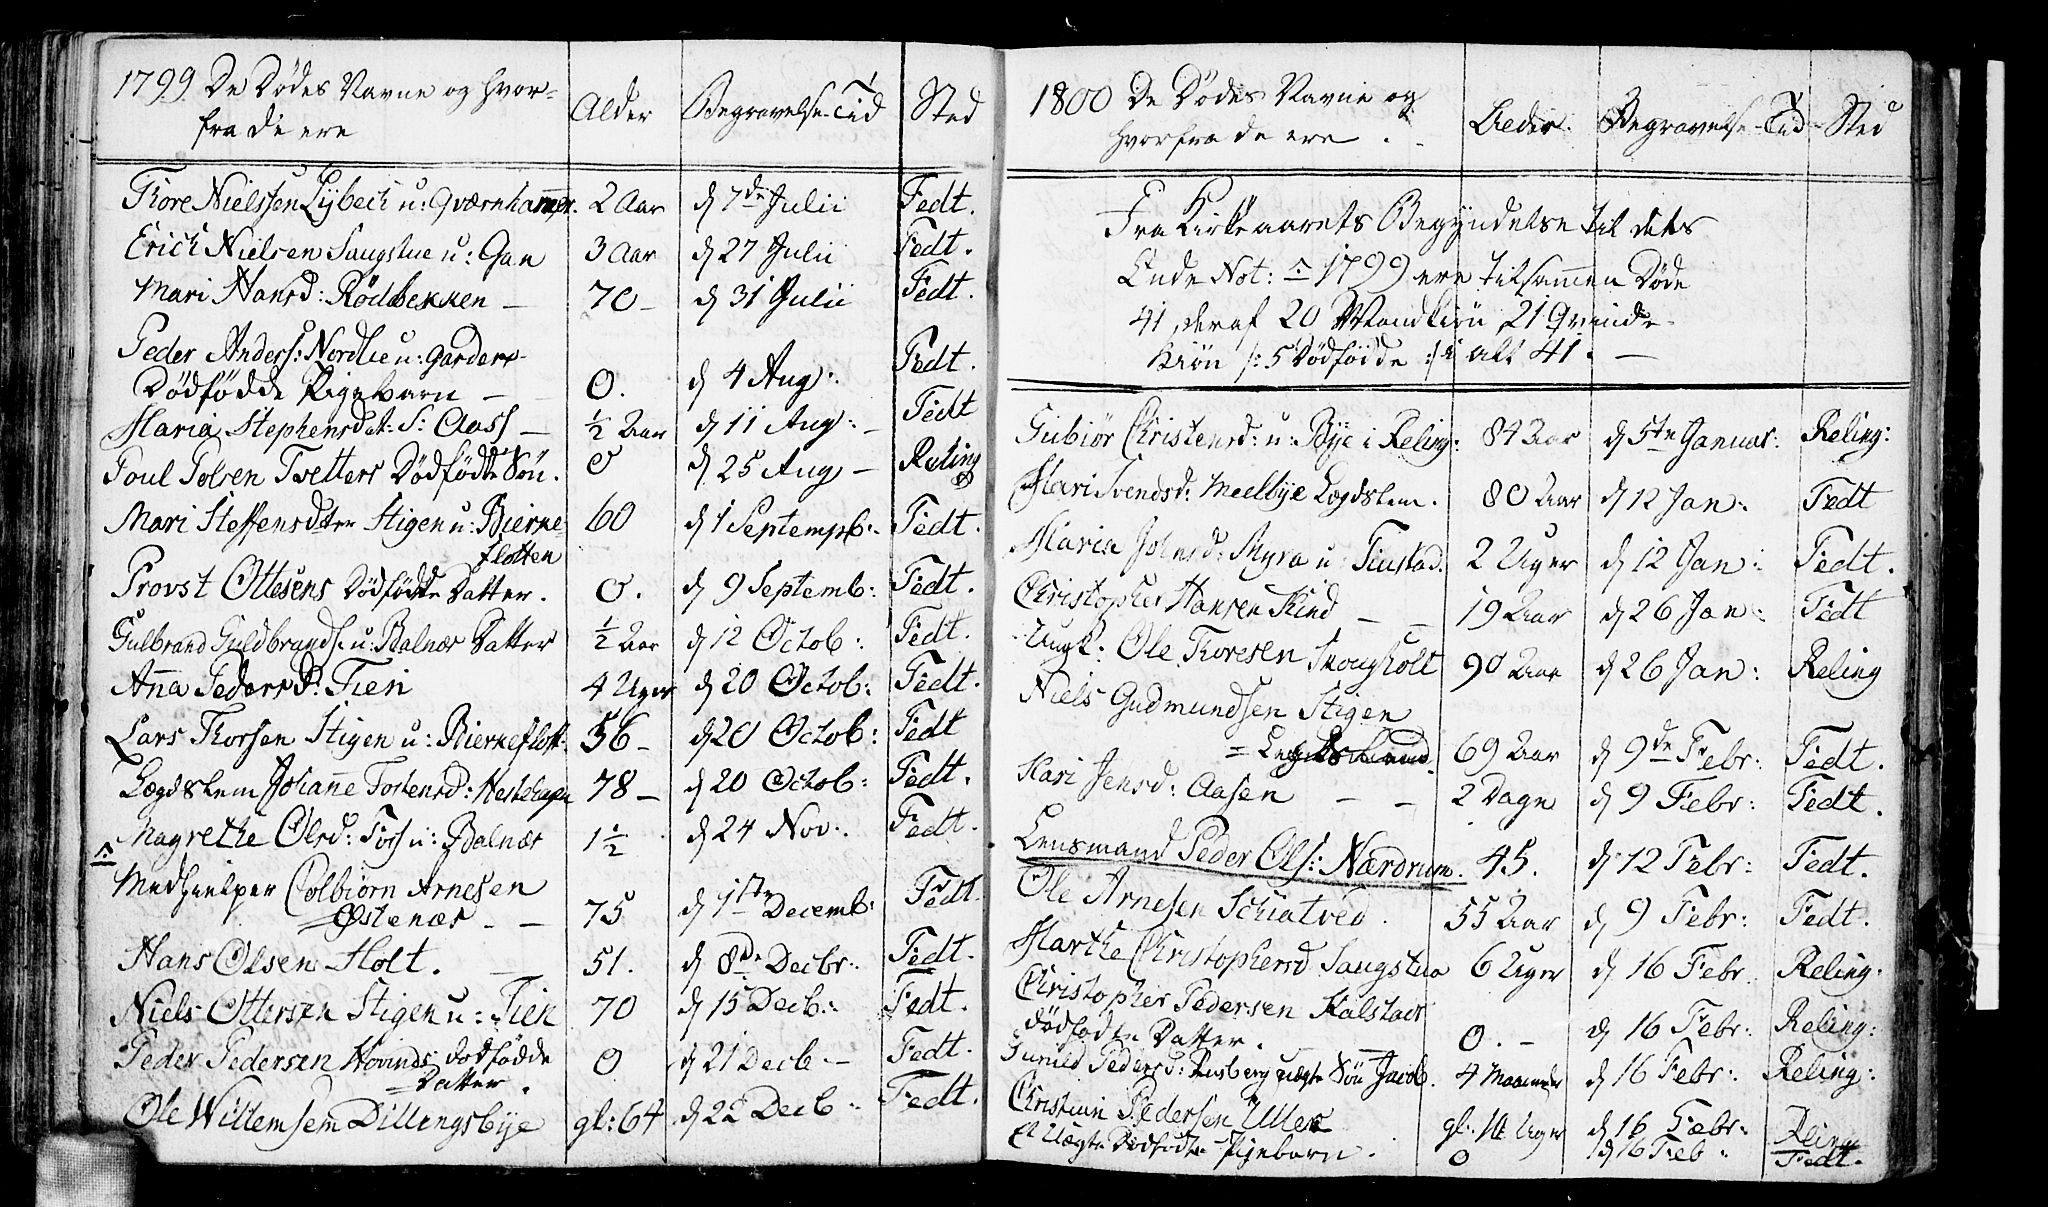 1799 De Dødes Navne og hvor-
fra de ere
Alder
Begravelse-Tid
Sted
Thore Nielssen Lybech u: Qværnhammer. 2 Aar d 7de Julii Fedt.
Erich Nielsen Saugstue u: Gan 3 Aar d 27 Julii Fedt.
Mari Hansd: Rödbekken – 70 – d 31 Julii Fedt.
Peder Anders: Nordlie u: Garders
Dödfödde Pigebarn – 0. d 4 Aug: Fedt.
Maria Stephensdat: S: Aass – ½ Aar d 11 Aug: – Fedt
Poul Polsen Tvetters Dödfödte Sön. 0 d 25 Aug – Reling
Mari Steffensdtter Stigen u: Bierke-
flotten 60 d 1 Septemb: Fedt.
Provst Ottesens Dödfödte Datter. 0. d 9 Septemb: Fedt.
Gulbrand Guldbrands: u: Balnær Datter ½ Aar d 12 Octob: Fedt.
Anna Pedersd: Tien 4 Uger d 20 Octob: Fedt.
Lars Thorsen Stigen u: Bierkeflott: 56 – d 20 Octob: Fedt
Lægdslem Johanne Tostensd: Hestehagen 78 – d 20 Octob: Fedt.
Magrethe Olsd: Fors u: Balnær 1½ d 24 Nov: Fedt.
Medhielper Colbiörn Arnesen
Östenær – – 75 d 1ste Decemb: Fedt.
Hans Olsen Holt. – 51. d 8de Decbr: Fedt.
Niels Ottersen Stigen u: Tien 70 d 15 Decb: Fedt.
Peder Pedersen Hovinds dödfödde
Datter. 0 d 21 Decb – Fedt.
Ole Willemsem Dillengsbye gl: 64 d 22 Decb: Fedt.
1800 De Dødes Navne og
hvorfra de ere.
Alder.
Begravelse-Tid
Sted
Fra Kirkeaarets Begyndelse til dets
Ende Not: 1799 ere tilsammen Døde
41, deraf 20 Mandkiön, 21 Qvinde-
kiön /: 5 Dödfödde :/ i alt 41. –
Gubiör Christensd: u: Bye i Reling: 84 Aar d 5te Januar: Reling:
Mari Svendsd: Meelbye Lægdslem. 80 Aar d 12 Jan: Fedt
Maria Johnsd: Myra u: Tiustad. 2 Uger d 12 Jan: Fedt.
Christopher Hansen Kind – – 19 Aar d 26 Jan: Fedt
Ungk: Ole Thoresen Skougholt 90 Aar d 26 Jan: Reling
Niels Gudmundsen Stigen
69 Aar d 9de Febr: Fedt.
Kari Jensd: Aasen – – 2 Dage d 9 Febr: Fedt.
Lensmand Peder Ols: Nærdrum. 45. d 12 Febr: Fedt.
Ole Arnesen Schiatved. 55 Aar d 9 Febr: Fedt.
Marthe Christophersd Saugstua 6 Uger d 16 Febr. Reling.
Christopher Pedersen Kalstad
dödfödte Datter. 0. – d 16 Febr: Reling:
Gunild Pedersd: uægte Sön Jacob. 4 Maaneder d 16 Febr: Reling:
Christian Pedersen Uller gl: Uger d 16 Febr: Reling
Et Uægte Dödfödte Pigebarn. 0 d 16 Feb: Fedt.